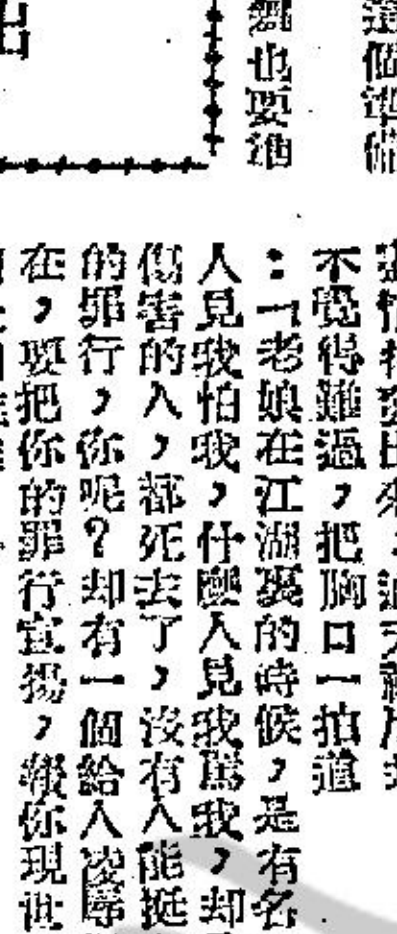 這個準備
也要油
不覺得難過，把胸口一拍道
：「老娘在江湖裏的時候，是有名
人見我怕我，什麽人見我罵我，却
傷害的人，都死去了，沒有人能挺
的罪行，你呢？却有一個給人凌辱
在，要把你的罪行宣揚，報你現世
出